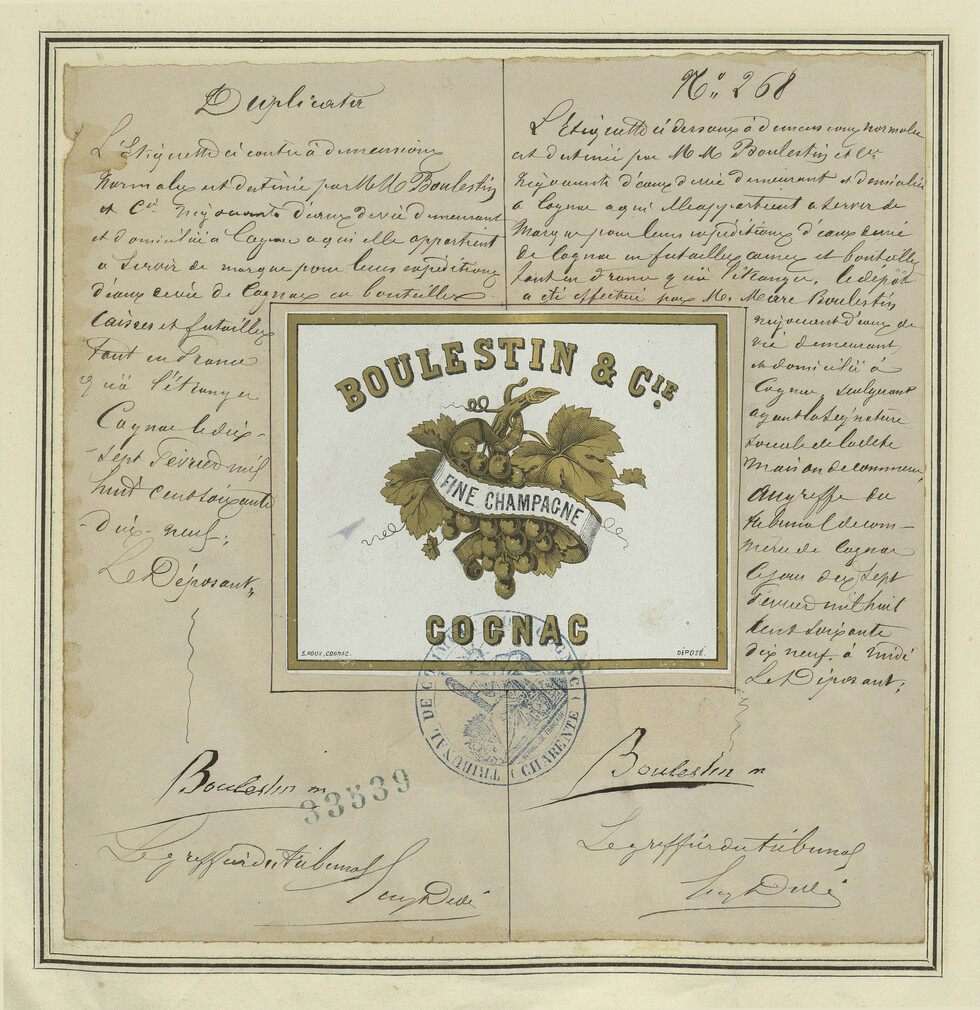 Duplicata
L'Etiquette ci contre à dimensions
normales est destinée par MM Boulestin
et Cie négociants d'eaux de vie demeurant
et domiciliés à Cognac a qui elle appartient
a servir de marque pour leurs expéditions
d'eaux de vie de Cognac en bouteilles
caisses et futailles
tant en France
qu'à l'étranger
Cognac le dix-
-sept Février mil
huit cent soixante
-dix-neuf;
Le Déposant,,
Boulestin m
33539
Le greffier du tribunal
No 268
L'Etiquette ci dessous à dimensions normales
est destinée par MM Boulestin et Cie
négociants d'eaux de vie demeurant et domiciliés
a Cognac a qui elle appartient a servir de
marque pour leurs expéditions d'eaux de vie
de Cognac en futailles caisses et bouteilles
tant en France qu'à l'étranger, le dépôt
a été effectué par Mr Marc Boulestin
négociant d'eaux de
vie demeurant
et domicilié à
Cognac, seul gérant
ayant la signature
sociale de la dite
maison de commerce
au greffe du
tribunal de com-
merce de Cognac
ce jour dix sept
Février mil huit
cent soixante
dix neuf, a midi
Le Déposant;
Boulestin m
Le greffier du tribunal
BOULESTIN & CIE.
FINE CHAMPAGNE
COGNAC
S. ROUX, COGNAC.
DÉPOSÉ.
TRIBUNAL DE COMMERCE DE COGNAC (CHARENTE)